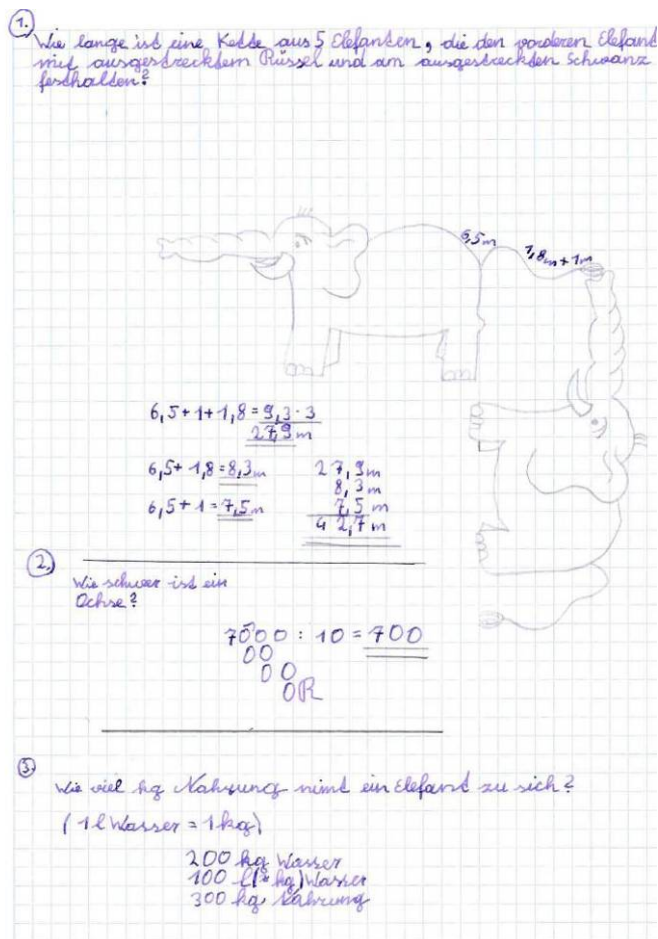 1.
Wie lange ist eine Kette aus 5 Elefanten, die den vorderen Elefant
mit ausgestrecktem Rüssel und am ausgestreckten Schwanz
festhalten?
6,5m
1,8m+1m
6,5+1+1,8=9,3·3
27,9m
6,5+1,8=8,3m
6,5+1=7,5m
27,9m
8,3m
7,5m
42,7m
2.
Wie schwer ist ein
Ochse?
7000:10=700
00
00
0R
3.
Wie viel kg Nahrung nimt ein Elefant zu sich?
(1l Wasser=1kg)
200 kg Wasser
100 l(=kg)Wasser
300 kg Nahrung